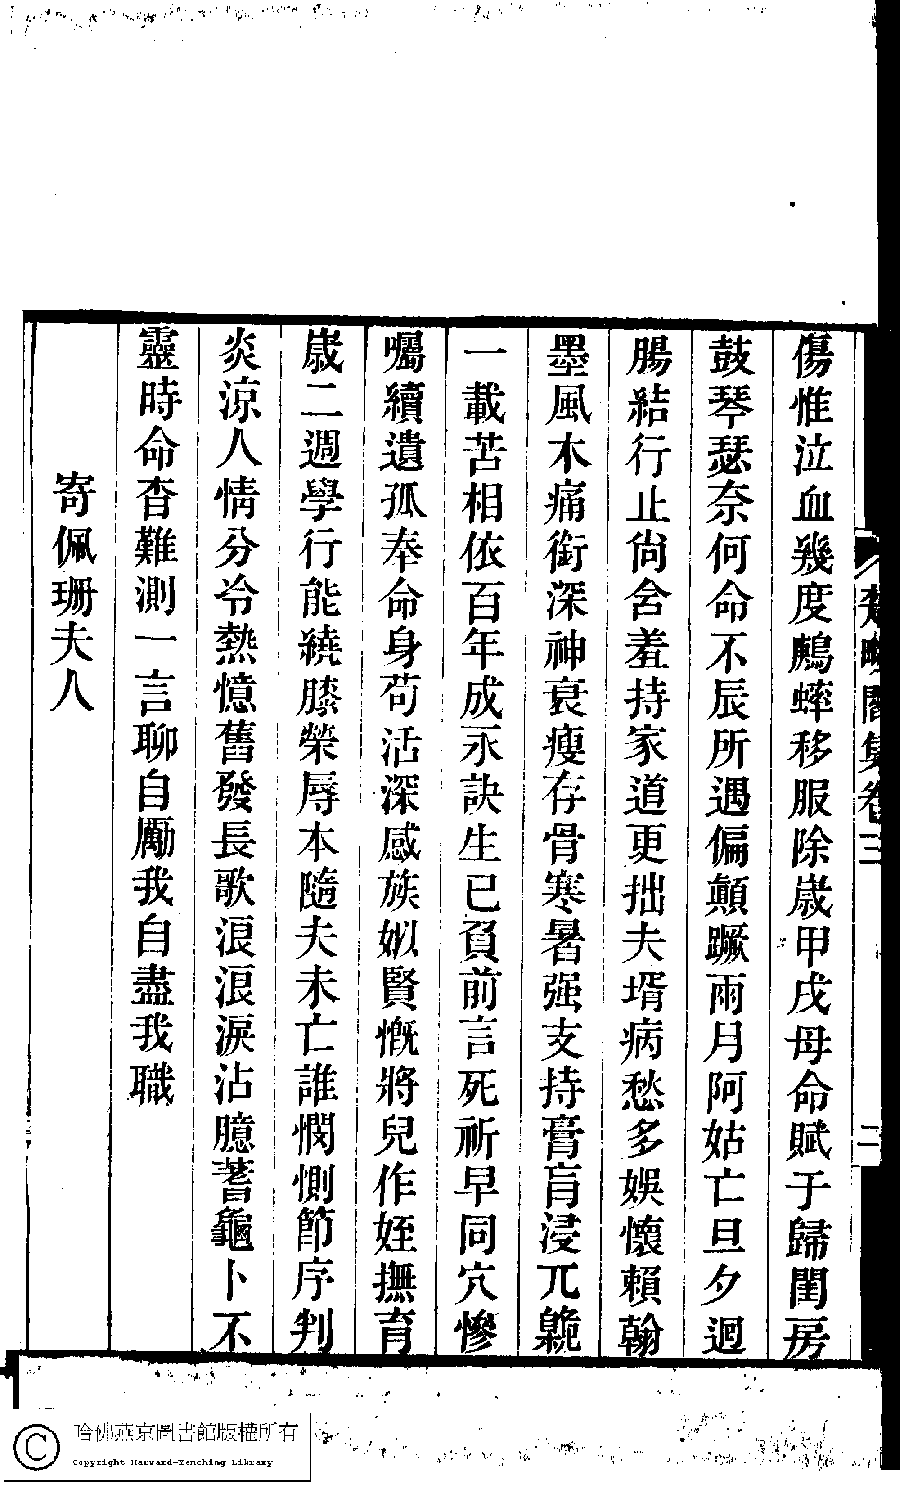 傷惟泣血幾度鷓蟀移服除歲甲戌母命賦于歸閨房
鼓琴瑟奈何命不辰所遇偏顛蹶兩月阿姑亡旦夕迴
腸結行止尙含羞持家道更拙夫壻病愁多娛懷賴翰
墨風木痛銜深神衰瘦存骨寒暑强支持膏肓浸兀
一載苦相依百年成永訣生已負前言死祈早同穴慘
囑續遺孤奉命身苟活深感族姒賢慨將兒作姪撫育
歲二週學行能繞膝榮辱本隨夫未亡誰憫惻節序判
炎涼人情分冷熱憶舊發長歌浪浪淚沾臆蓍龜卜不
靈時命杳難測一言聊自勵我自盡我職
寄佩珊夫人
閣集卷三
二
哈佛燕京圖書館版權所有
Copyright Harvard-Yenching Library